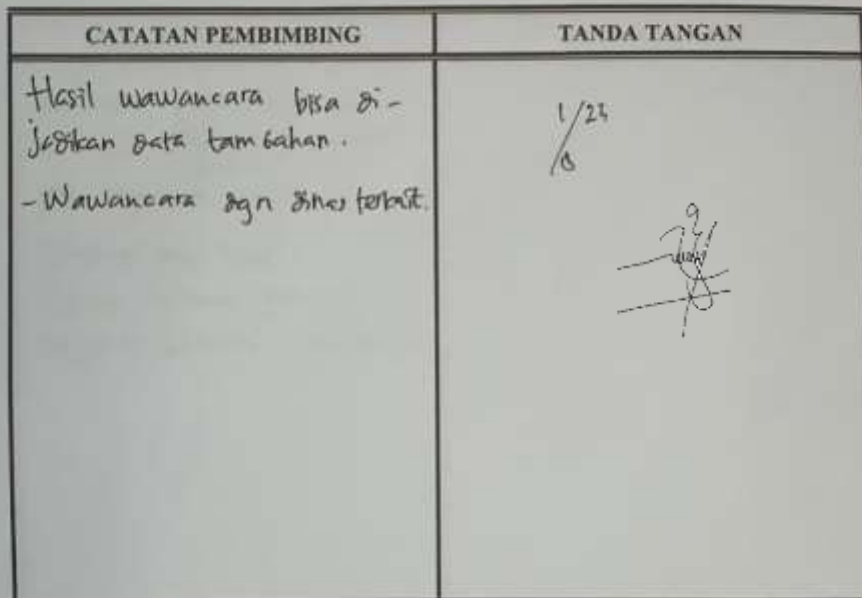 CATATAN PEMBIMBING
TANDA TANGAN
Hasil wawancara bisa di-
jadikan data tambahan.
- Wawancara dgn dinas terkait.
1/